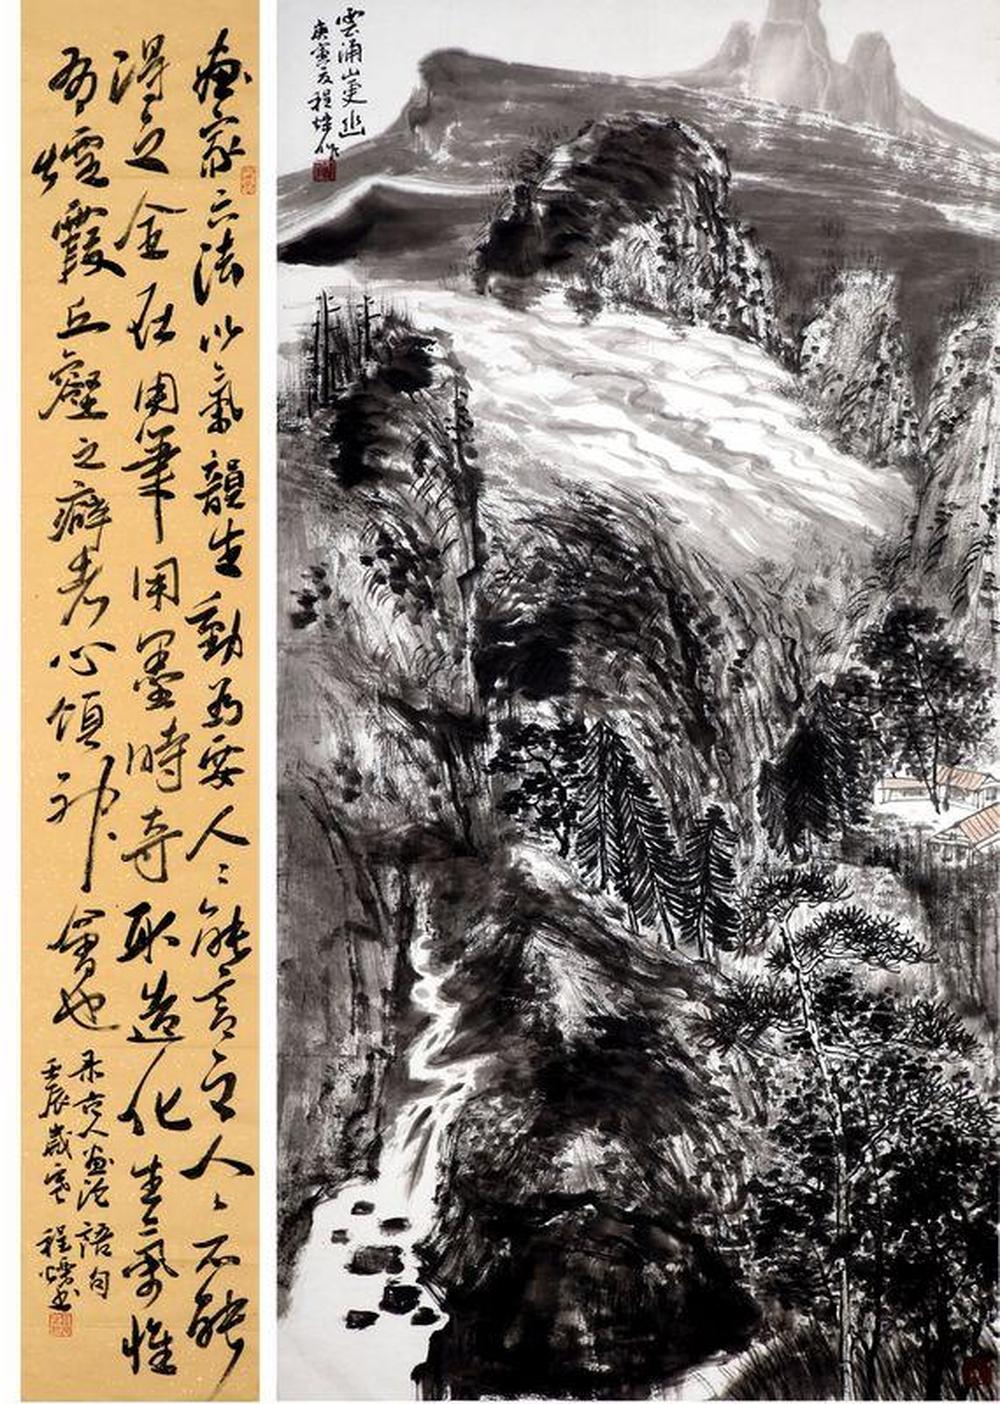 画家六法以氣韻生動为要人〻能言之人〻不能
得之全在用筆用墨時奇取造化生氣惟
有煙霞丘壑之癖者心領神會也
录古人画论語句
壬辰歲寒 程
雲涌山更幽
庚寅夏程作